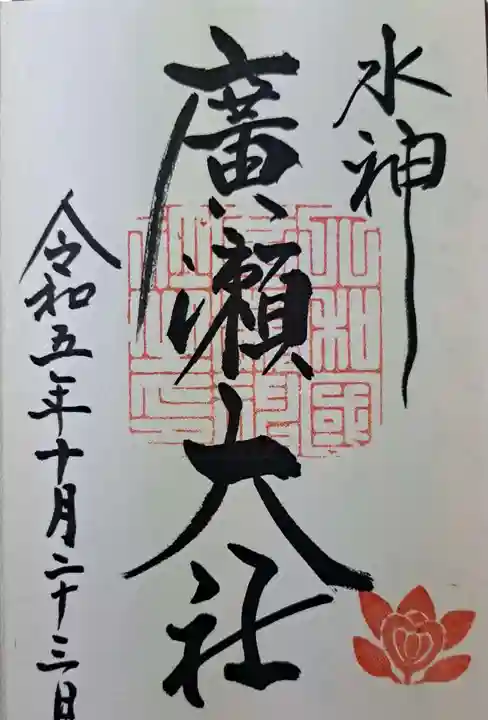 水神
廣瀬大社
令和五年十月二十三日